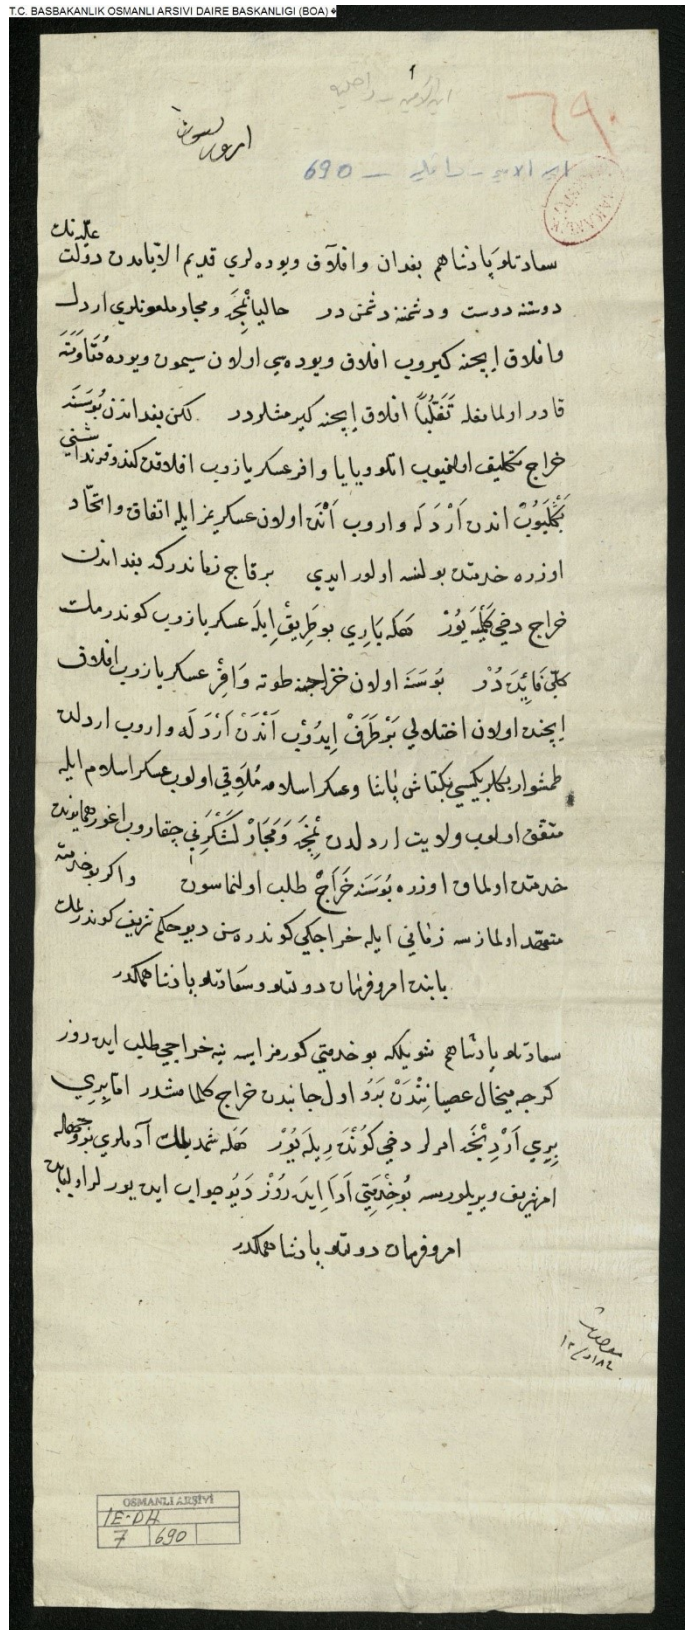 T.C. BASBAKANLIK OSMANLI ARSIVI DAIRE BASKANLIGI (BOA)
٦٩٠
690
عليه نك
سعادتلو پادشاهم بغدان وافلاق ويوده لري قديم الايامدن دولت
دوستنه دوست و دشمننه دشمن در حاليا نمچه ومجار ملعونلري اردل
وافلاق ايچنه كيروب افلاق ويوده سي اولان سيمون ويوده مقاومته
قادر اولمامغله تغلبا افلاق ايچنه كيرمشلردر لكن بغداندن بو سنه
خراج تكليف اولنميوب اتلو ويايا وافر عسكر يازوب افلاقده كندو قرنداشني
بكليوب اندن اردله واروب انده اولان عسكريمز ايله اتفاق واتحاد
اوزره خدمتده بولنسه اولور ايدي برقاچ زماندركه بغداندن
خراج دخي كلميه يور هله باري بو طريق ايله عسكر يازوب كوندرملك
كلي فائده در بو سنه اولان خراجنه طوته وافر عسكر يازوب افلاق
ايچنده اولان اختلالي بر طرف ايدوب اندن اردله واروب اردلده
طمشوار بكلربكيسي بكتاش پاشا وعسكر اسلامه ملاقي اولوب عسكر اسلام ايله
متفق اولوب ولايت اردلدن نمچه ومجار لشكرني چقاروب اغور همايونده
خدمتده اولماق اوزره بو سنه خراج طلب اولنماسون واكر بو خدمته
متعهد اولمازسه زماني ايله خراجكي كوندره سن ديو حكم شريف كوندرلمك
بابنده امر وفرمان دولتلو وسعادتلو پادشاهمكدر
سعادتلو پادشاهم شويله كه بو خدمتي كورمز ايسه ينه خراجي طلب ايده روز
كرچه ميخال عصيانندن برو اول جانبدن خراج كلمامشدر اما بري
بري اردنجه امرلر دخي كوندريله يور هله شمديلك آدملري بو وجهله
امر شريف ويريلورسه بو خدمتي ادا ايده روز ديو جواب ايده يورلر اوليابده
امر وفرمان دولتلو پادشاهمكدر
OSMANLI ARŞİVİ
İE-DH
7 690